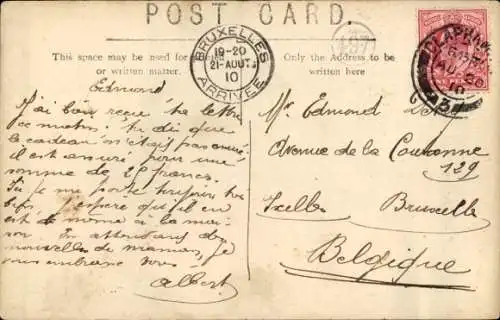 POST CARD.
This space may be used for
or written matter.
Only the Address to be
written here
BRUXELLES
19-20
21-AOUT
10
ARRIVÉE
CLAPHAM
AU 20
10
Edmond
J'ai bien reçu ta lettre
ce matin. tu dis que
le cadeau n'était pas
il est assuré pour une
somme de francs.
Je me porte toujours très
bien j'espère qu'il en
est de même à la mai-
son. En attendant des
nouvelles de maman, je
vous embrasse tous.
Albert
Mr. Edmond
Avenue de la Couronne
129
Ixelles Bruxelles
Belgique